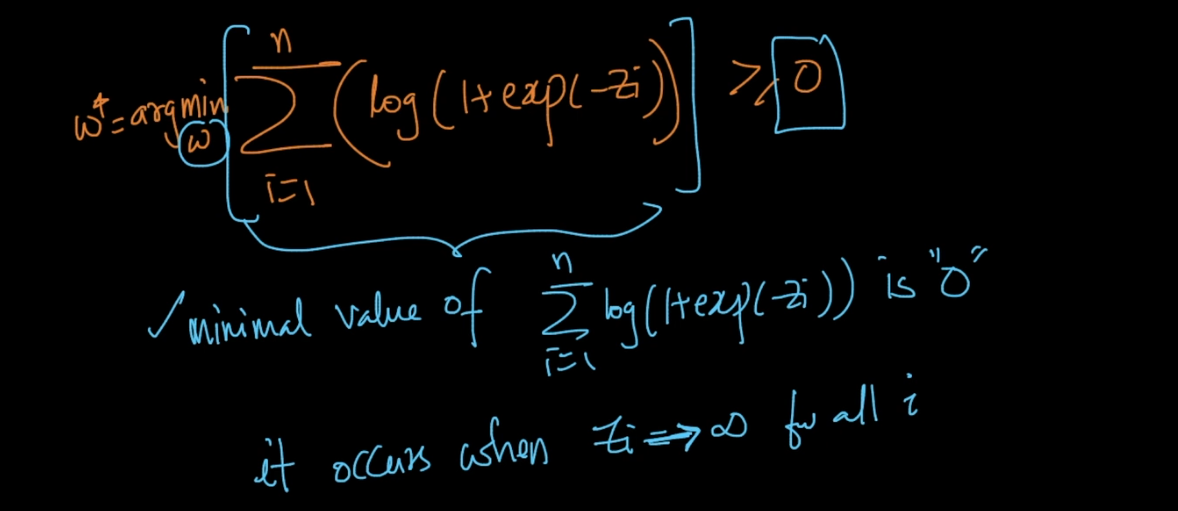 w* = argmin_w [ n Σ i=1 (log(1+exp(-zi)) ] ≥ 0
✓ minimal value of n Σ i=1 log(1+exp(-zi)) is "0"
it occurs when zi → ∞ for all i